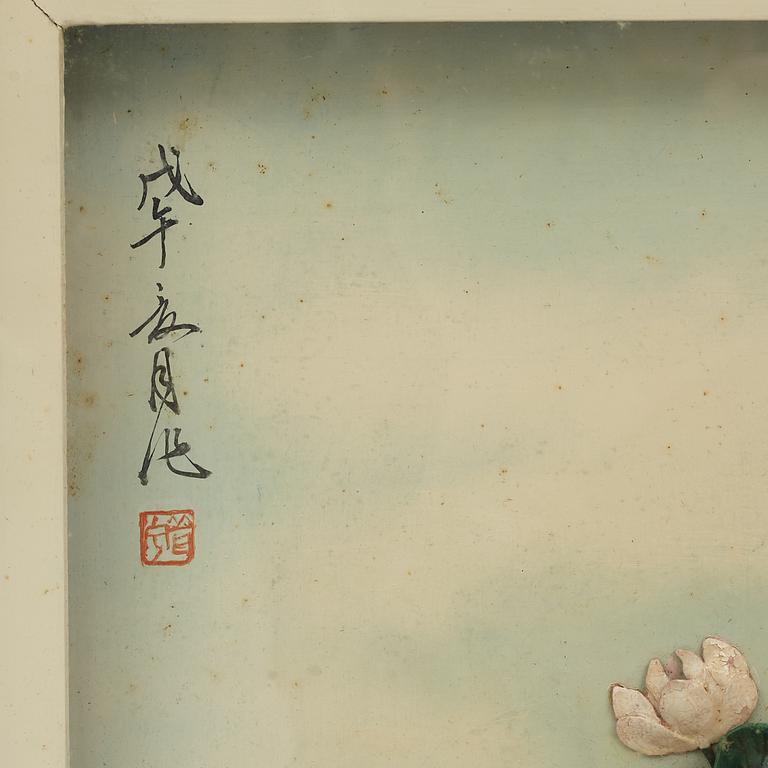 戊午亥月作